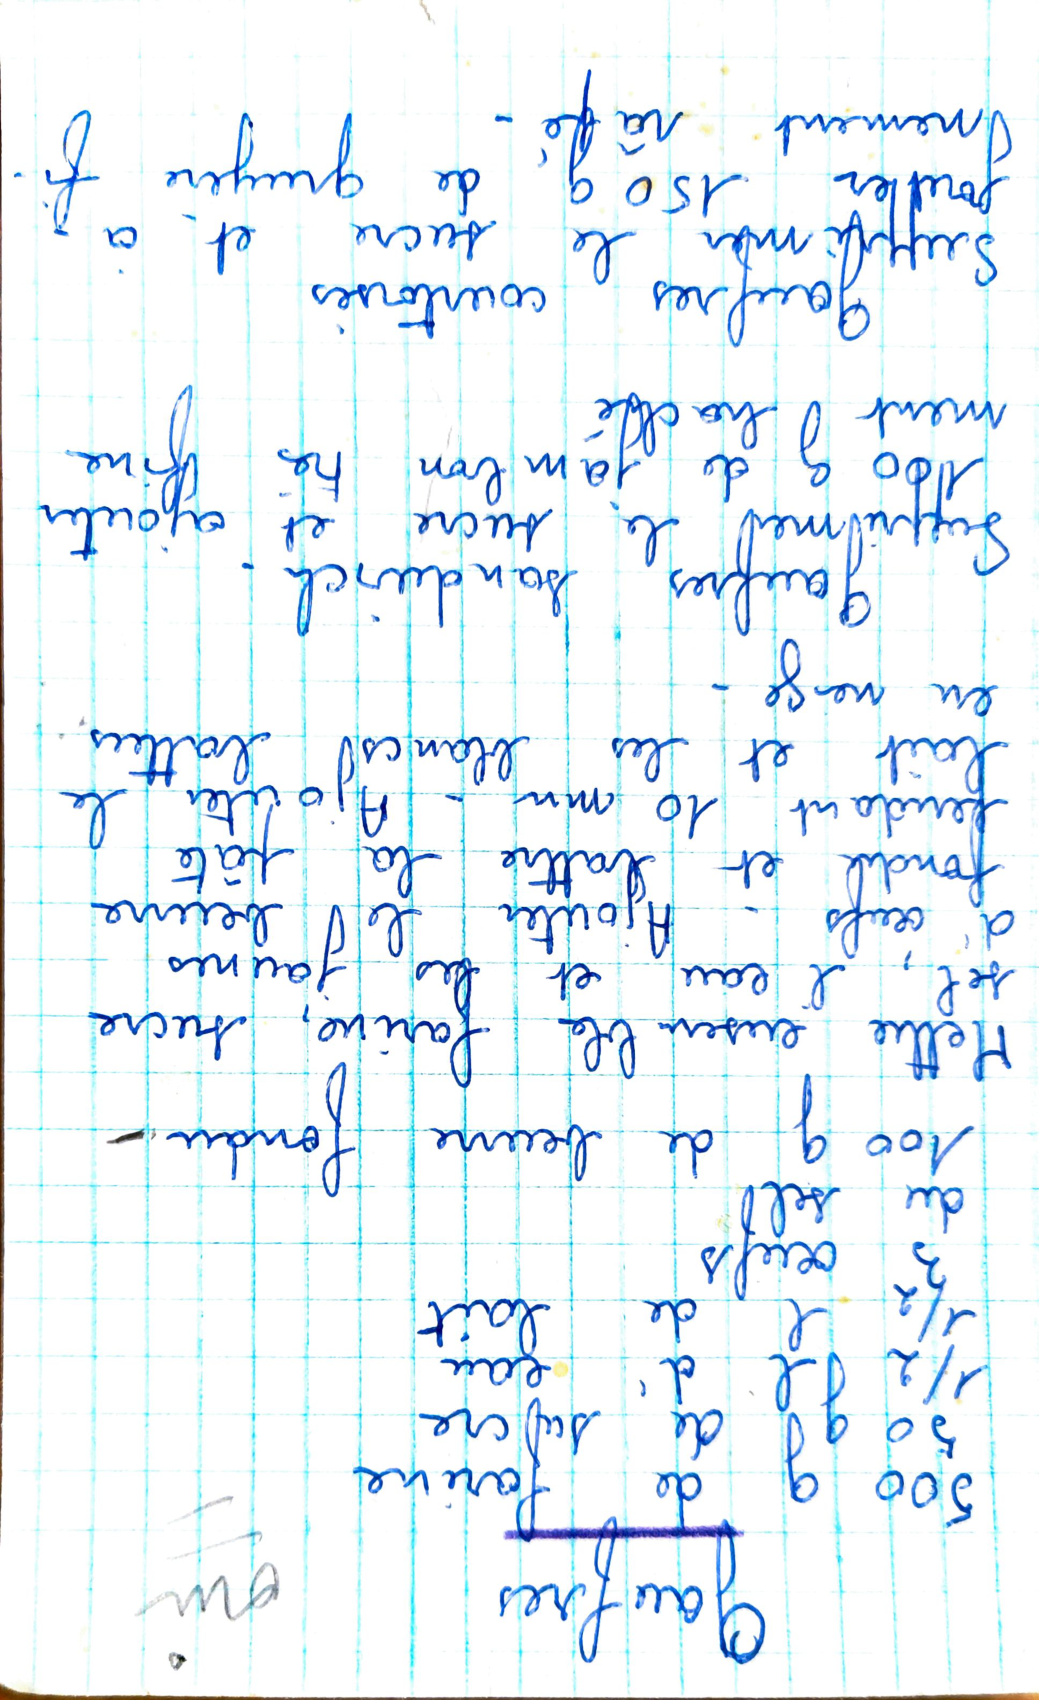 oui
Gaufres
500 g de farine
50 g de sucre
1/2 l d'eau
1/2 l de lait
3 oeufs
du sel
100 g de beurre fondu -
Mettre ensemble farine, sucre
sel, l'eau et les jaunes
d'oeufs - Ajouter le beurre
fondu et battre la pâte
pendant 10 mn - Ajouter le
lait et les blancs battus
en neige -
Gaufres sandwich -
Supprimer le sucre et ajouter
100 g de jambon très fine
ment haché
Gaufres courtoises
Supprimer le sucre et a j
jouter 150 g de gruyère fi-
nement râpé -